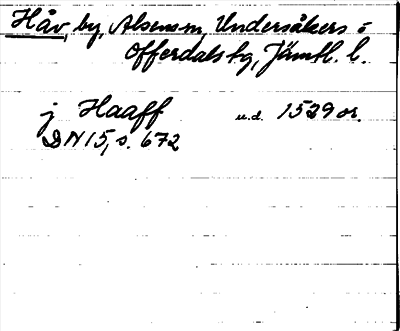 Håv, by, Alsens sn, Undersåkers o
Offerdals tg, Jämtl. l.
j Haaff u.d. 1529 or.
DN 15, s. 672